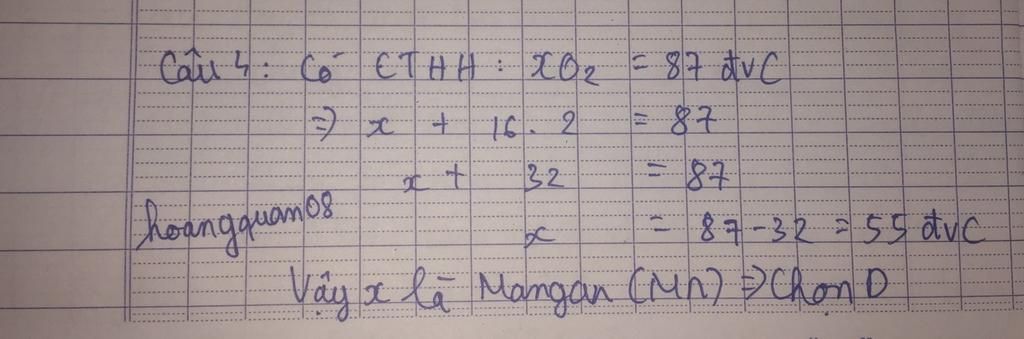 Câu 4: Có CTHH: XO2 = 87 đvC
=> x + 16. 2 = 87
x + 32 = 87
hoangquan08
x = 87-32 = 55 đvC
Vậy x là Mangan (Mn) => Chọn D